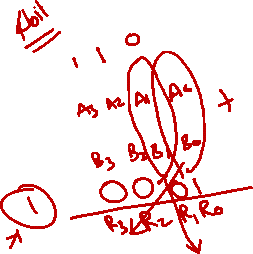 1 1 0
A3 A2 A1 A0 +
B3 B2 B1 B0
1 0 0 0 1
R3 R2 R1 R0